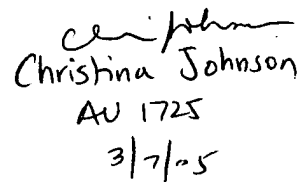 Christina Johnson
AU 1725
3/7/05